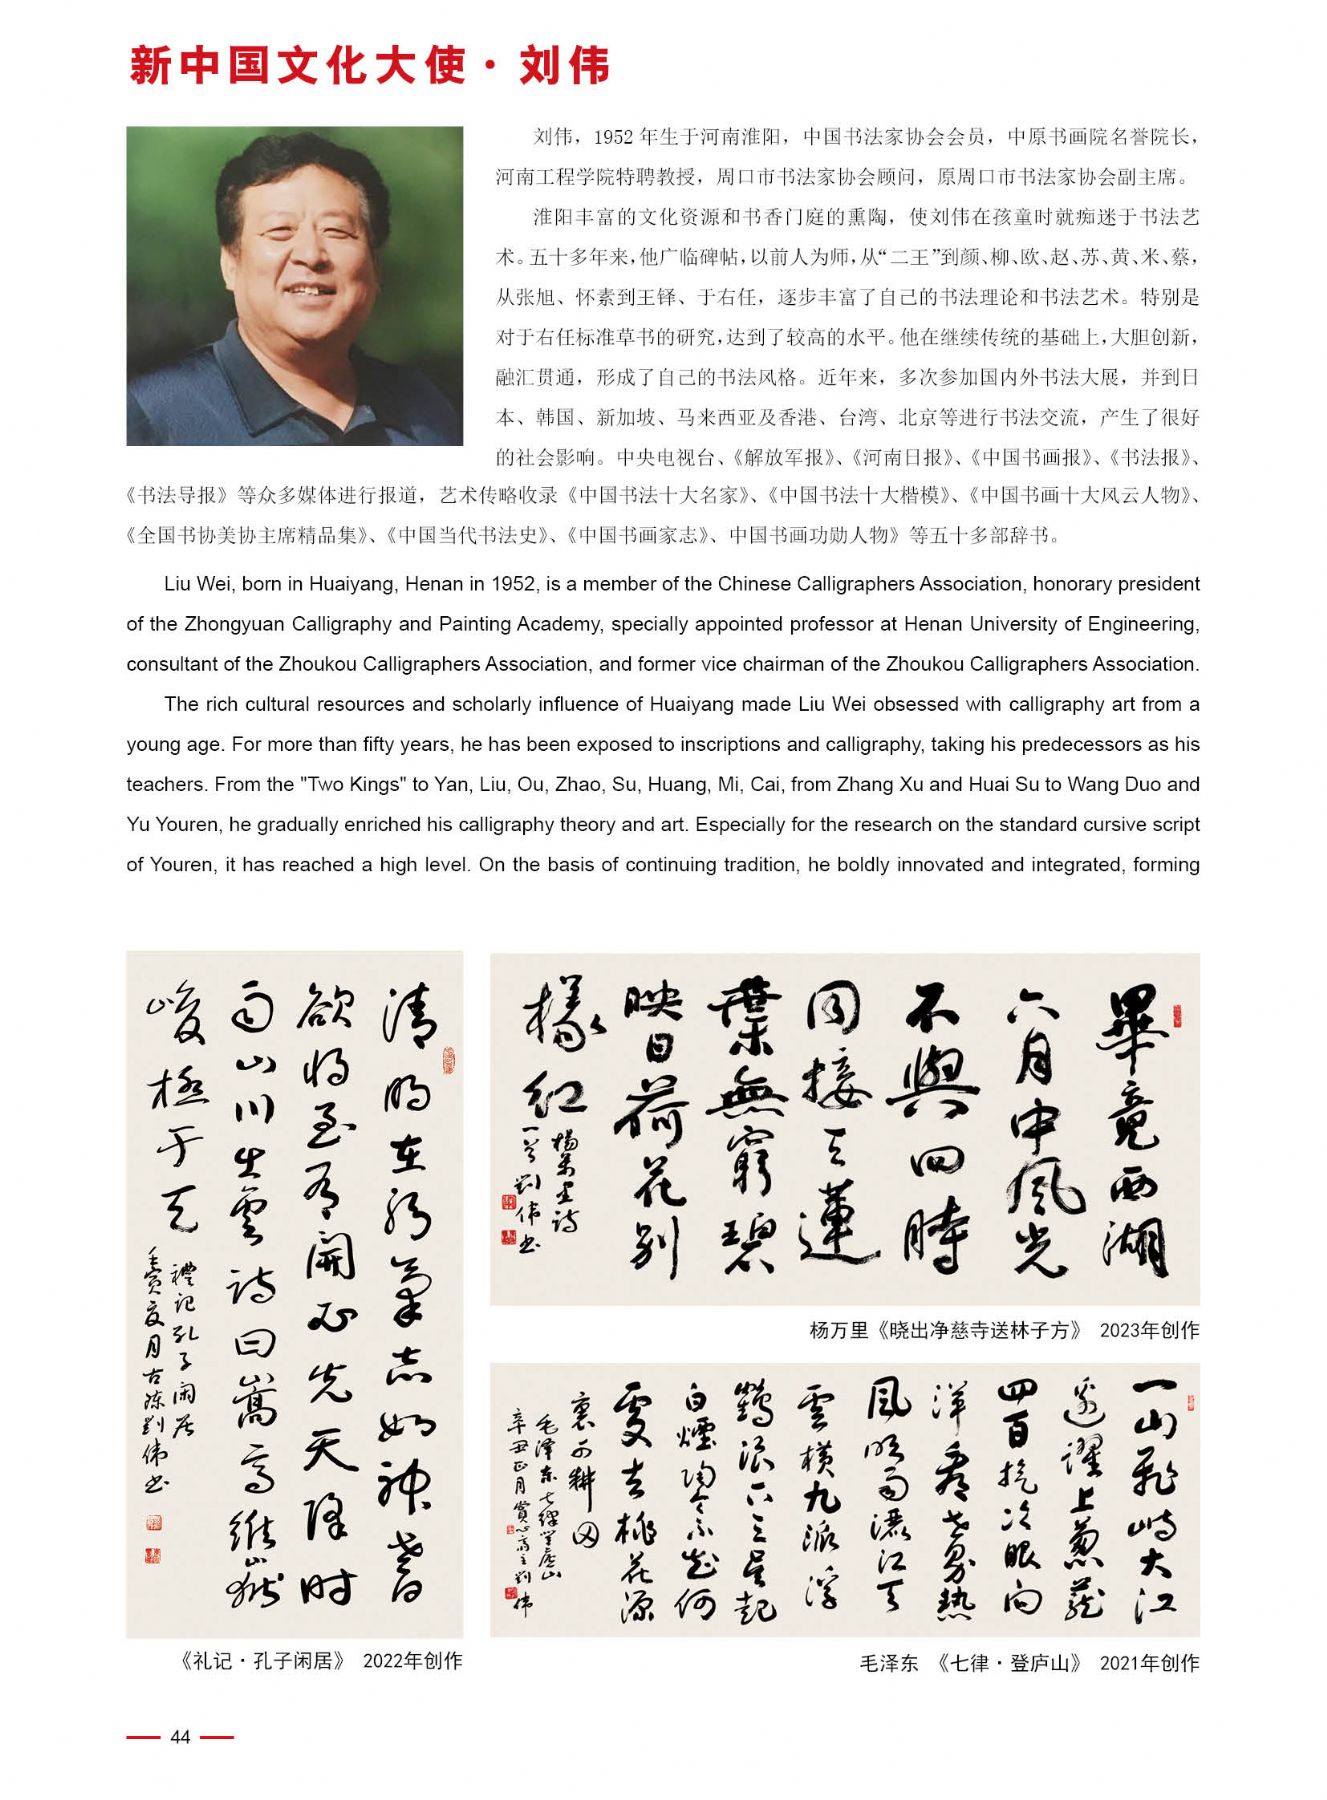 新中国文化大使·刘伟
刘伟，1952 年生于河南淮阳，中国书法家协会会员，中原书画院名誉院长，
河南工程学院特聘教授，周口市书法家协会顾问，原周口市书法家协会副主席。
淮阳丰富的文化资源和书香门庭的熏陶，使刘伟在孩童时就痴迷于书法艺
术。五十多年来，他广临碑帖，以前人为师，从“二王”到颜、柳、欧、赵、苏、黄、米、蔡，
从张旭、怀素到王铎、于右任，逐步丰富了自己的书法理论和书法艺术。特别是
对于右任标准草书的研究，达到了较高的水平。他在继续传统的基础上，大胆创新，
融汇贯通，形成了自己的书法风格。近年来，多次参加国内外书法大展，并到日
本、韩国、新加坡、马来西亚及香港、台湾、北京等进行书法交流，产生了很好
的社会影响。中央电视台、《解放军报》、《河南日报》、《中国书画报》、《书法报》、
《书法导报》等众多媒体进行报道，艺术传略收录《中国书法十大名家》、《中国书法十大楷模》、《中国书画十大风云人物》、
《全国书协美协主席精品集》、《中国当代书法史》、《中国书画家志》、中国书画功勋人物》等五十多部辞书。
Liu Wei, born in Huaiyang, Henan in 1952, is a member of the Chinese Calligraphers Association, honorary president
of the Zhongyuan Calligraphy and Painting Academy, specially appointed professor at Henan University of Engineering,
consultant of the Zhoukou Calligraphers Association, and former vice chairman of the Zhoukou Calligraphers Association.
The rich cultural resources and scholarly influence of Huaiyang made Liu Wei obsessed with calligraphy art from a
young age. For more than fifty years, he has been exposed to inscriptions and calligraphy, taking his predecessors as his
teachers. From the "Two Kings" to Yan, Liu, Ou, Zhao, Su, Huang, Mi, Cai, from Zhang Xu and Huai Su to Wang Duo and
Yu Youren, he gradually enriched his calligraphy theory and art. Especially for the research on the standard cursive script
of Youren, it has reached a high level. On the basis of continuing tradition, he boldly innovated and integrated, forming
清明在躬氣志如神嗜
欲將至有開必先天降时
雨山川出雲詩曰嵩高維嶽
峻極于天
禮記孔子閑居
壬寅夏月古陳劉伟书
《礼记·孔子闲居》 2022年创作
畢竟西湖
六月中風光
不與四時
同接天蓮
葉無窮碧
映日荷花别
樣红
楊萬里诗
一首劉伟书
杨万里《晓出净慈寺送林子方》 2023年创作
一山飛峙大江
邊躍上葱蘢
四百旋冷眼向
洋看世界熱
風吹雨灑江天
雲橫九派浮
黃鶴浪下三吳起
白煙陶令不知何
處去桃花源
裏可耕田
毛澤东七律登廬山
辛丑正月賞心斋主劉伟
毛泽东 《七律·登庐山》 2021年创作
44